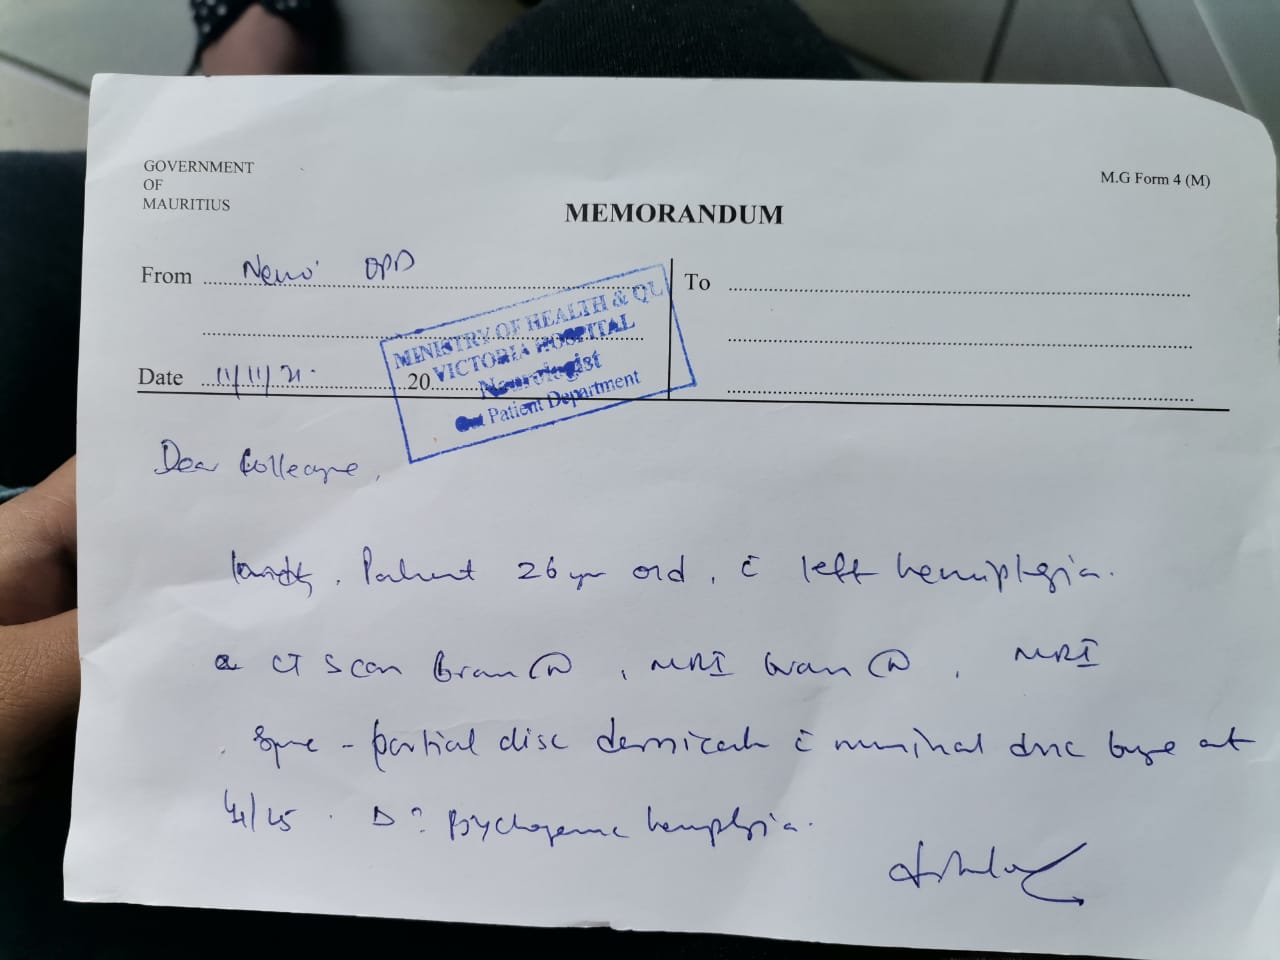 GOVERNMENT
OF
MAURITIUS
M.G Form 4 (M)
MEMORANDUM
From Neuro OPD
To
MINISTRY OF HEALTH & QU
VICTORIA HOSPITAL
Neurologist
Out Patient Department
Date 11/11/21. 20
Dear Colleague,
Patient 26 yr old, c̄ left hemiplegia.
CT Scan Brain Ⓝ, MRI brain Ⓝ, MRI
Spine - partial disc c̄ minimal disc bulge at
L4/L5. D? Psychogenic hemiplegia.